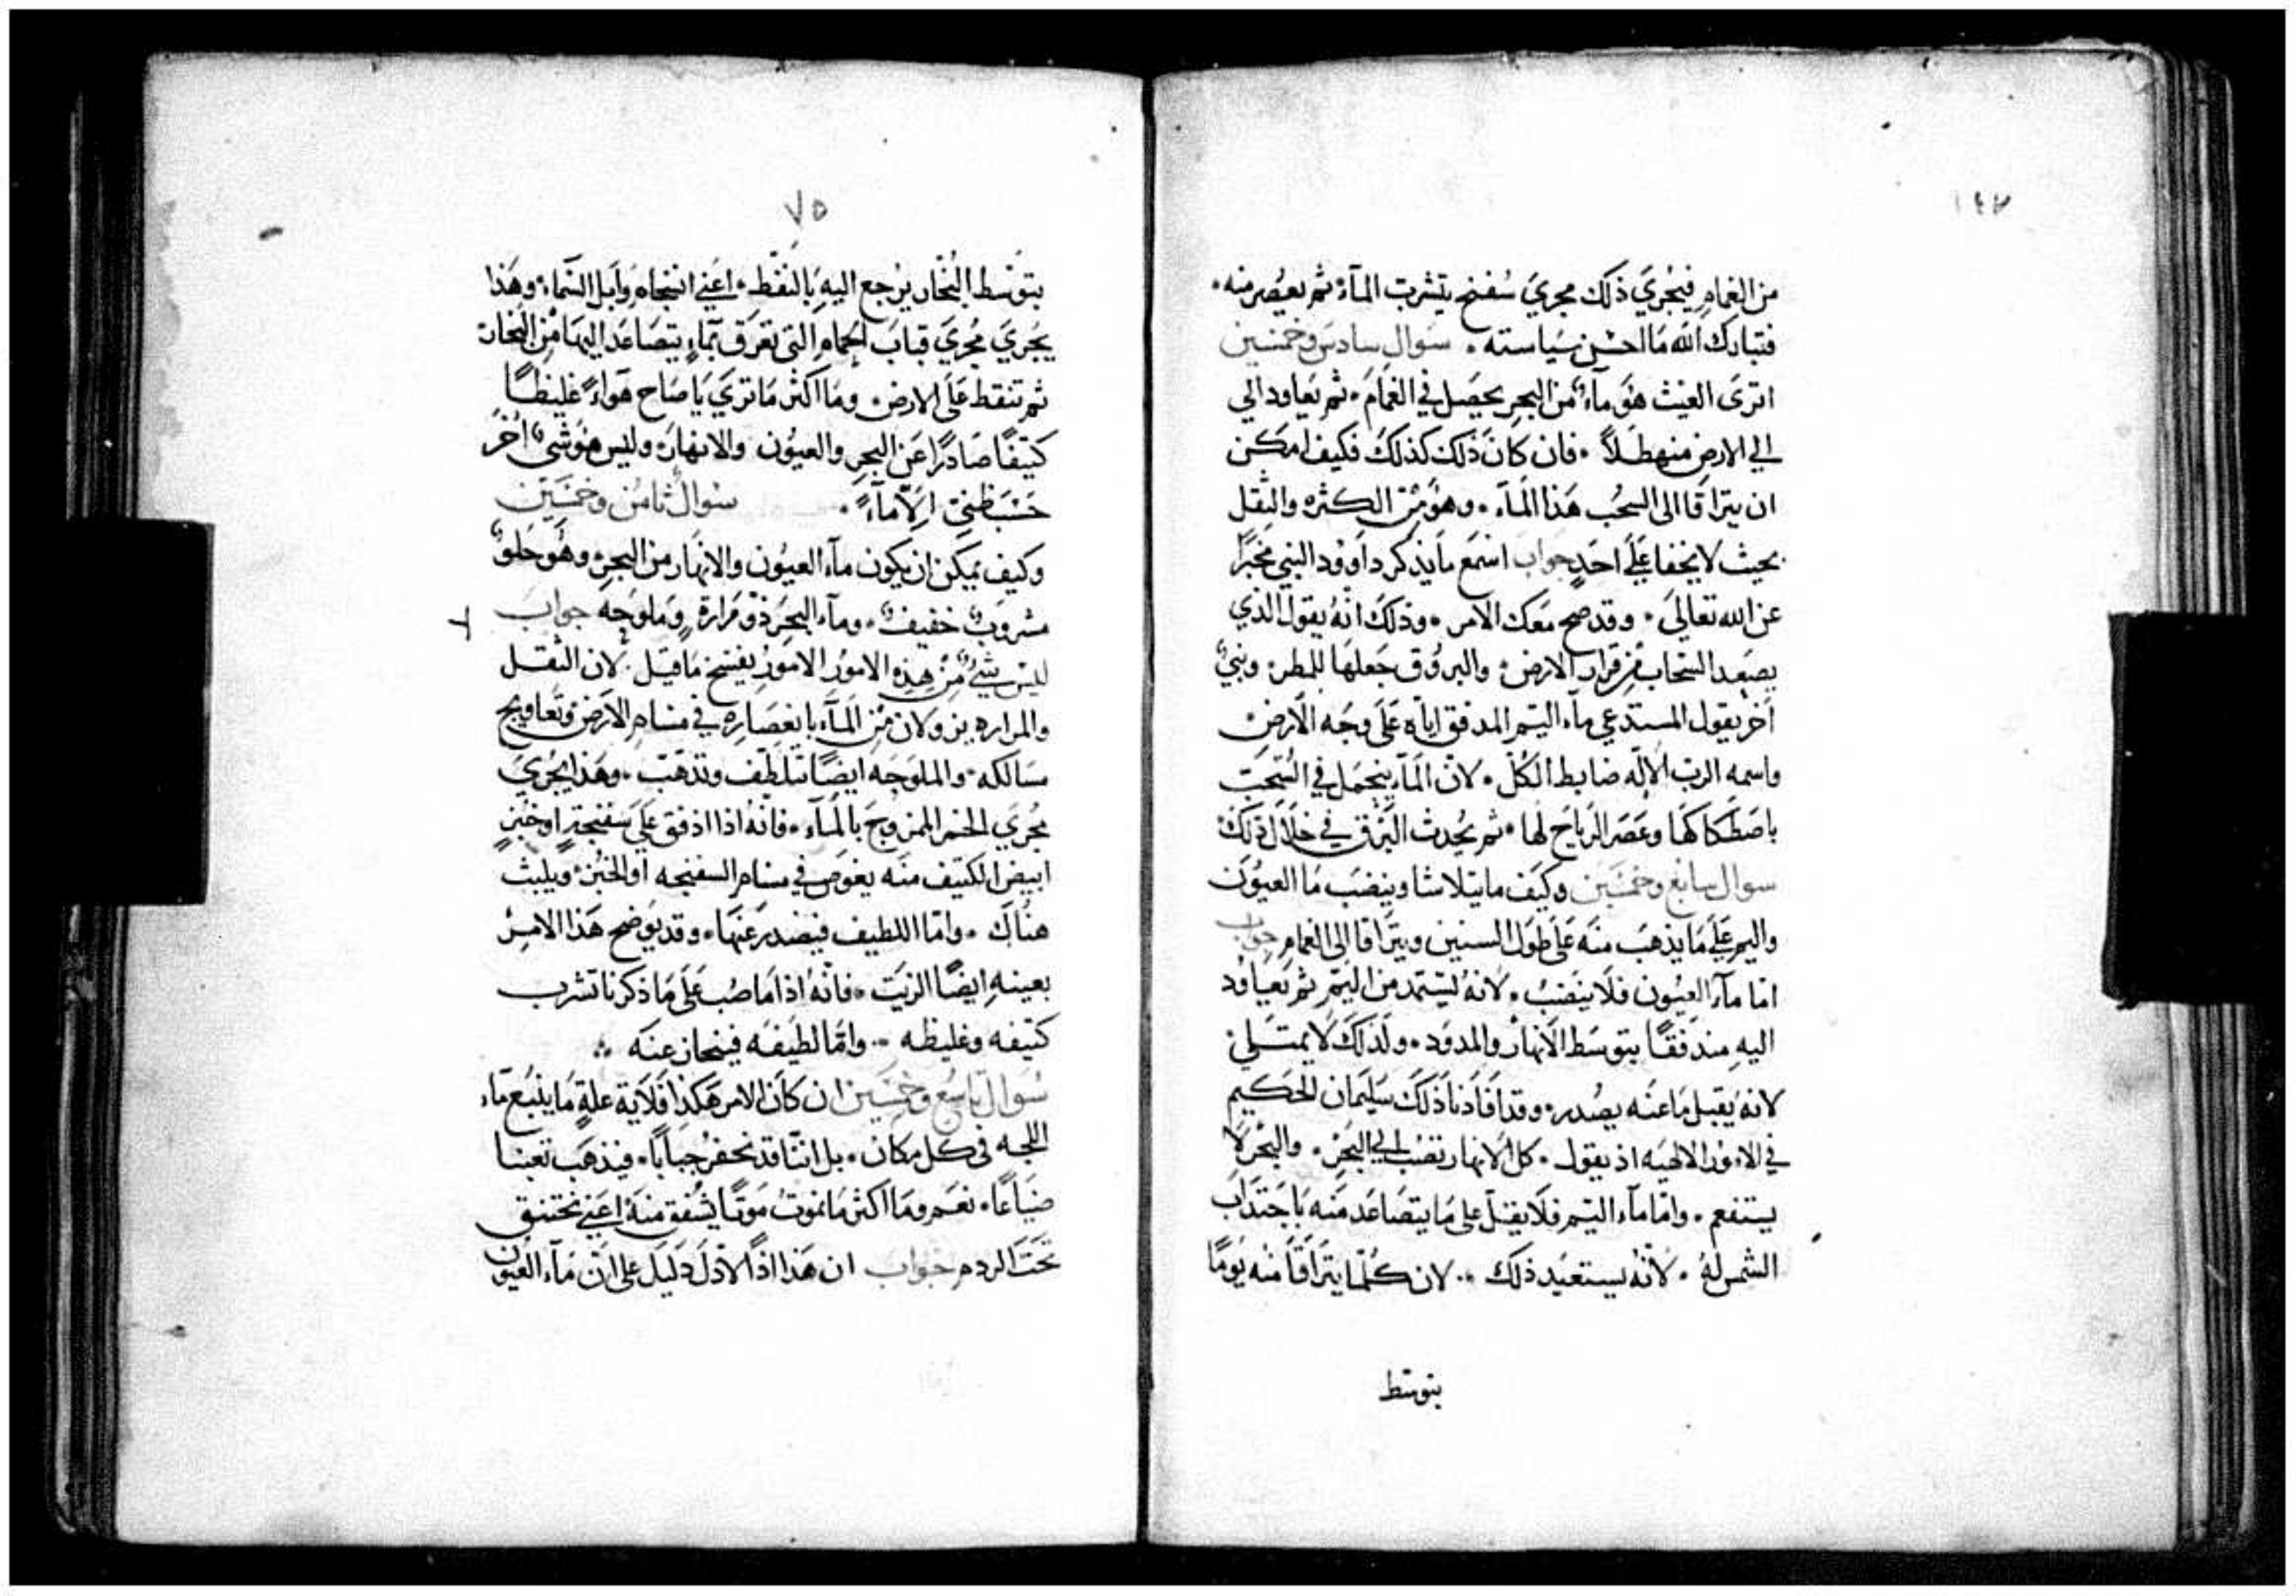 ١٤٧
من الغمام فيجري ذلك مجري سفنج يتشرب المآء ثم يعصر منه.
فتبارك الله ما احسن سياسته. سوال سادس وخمسين
اترى الغيث هو مآء من البحر يحصل في الغمام. ثم يعاود الي
الي الارض منهطلاً. فان كان ذلك كذلك فكيف امكن
ان يتراقا الى السحب هذا المآء. وهو من الكثره والثقل
بحيث لا يخفا علي احدٍ جواب اسمع ما يذكر داوود النبي مخبرًا
عن الله تعالي. وقد صح معك الامر. وذلك انه يقول الذي
يصعد السحاب من قرار الارض. والبروق جعلها للمطر. ونبي
آخر يقول المستدعي مآء اليم المدفق اياه على وجه الارض
واسمه الرب الاله ضابط الكل. لان المآء ينحمل في السحب
باصطكاكها وعصر الرياح لها. ثم يحدث البرق في خلال ذلك
سوال سابع وخمسين وكيف ما يتلاشا وينضب ما العيون
واليم علي ما يذهب منه على طول السنين ويتراقا الى الغمام جواب
اما مآء العيون فلا ينضب. لانه يستمد من اليم ثم يعاود
اليه مندفقًا بتوسط الانهار والمدود. ولذلك لا يمتلئ
لانه يقبل ما عنه يصدر. وقد افادنا ذلك سليمان الحكيم
في الامور الالهيه اذ يقول. كل الانهار تنصب الي البحر. والبحر لا
يستفعم. واما مآء اليم فلا يقل على ما يتصاعد منه باجتداب
الشمس له. لانه يستعيد ذلك. لان كلما يتراقا منه يومًا
بتوسط
٧٥
بتوسط البخار يرجع اليه بالنقط. اعني انسجام وابل السماء. وهذا
يجري مجري قباب الحمام التي تعرق بماءٍ يتصاعد اليها من البخار
ثم تنقط على الارض. وما اكثر ما تري يا صاح هواءً غليظًا
كثيفًا صادرًا عن البحر والعيون والانهار. وليس هو شي اخر
حسب ظني الا مآءً. سوال ثامن وخمسين
وكيف يمكن ان يكون مآء العيون والانهار من البحر. وهو حلو
مشروب خفيف. ومآء البحر ذو مرارةٍ وملوحه جواب
ليس شيء من هذه الامور الامور يفسخ ما قيل. لان الثقل
والمراره يزولان من المآء بانعصاره في مسام الارض وتعاويج
مسالكه. والملوحه ايضًا تتلطف وتذهب. وهذا يجري
مجري الخمر الممزوج بالمآء. فانه اذا اندفق علي سفنجةٍ او خبزٍ
ابيض الكثيف منه يغوص في مسام السفنجه او الخبز. ويلبث
هناك. واما اللطيف فيصدر عنها. وقد يوضح هذا الامر
بعينه ايضًا الزيت. فانه اذا ما صب على ما ذكرنا تشرب
كثيفه وغليظه. واما لطيفه فينحاز عنه
سوال تاسع وخمسين ان كان الامر هكذا فلاية علةٍ ما ينبع مآء
اللجه في كل مكان. بل اننا قد نحفر جبابًا. فيذهب تعبنا
ضياعًا. نعم وما اكثر ما نموت موتًا يشفق منه اعني نختنق
تحت الردم جواب ان هذا اذًا لادل دليل على ان مآء العيون